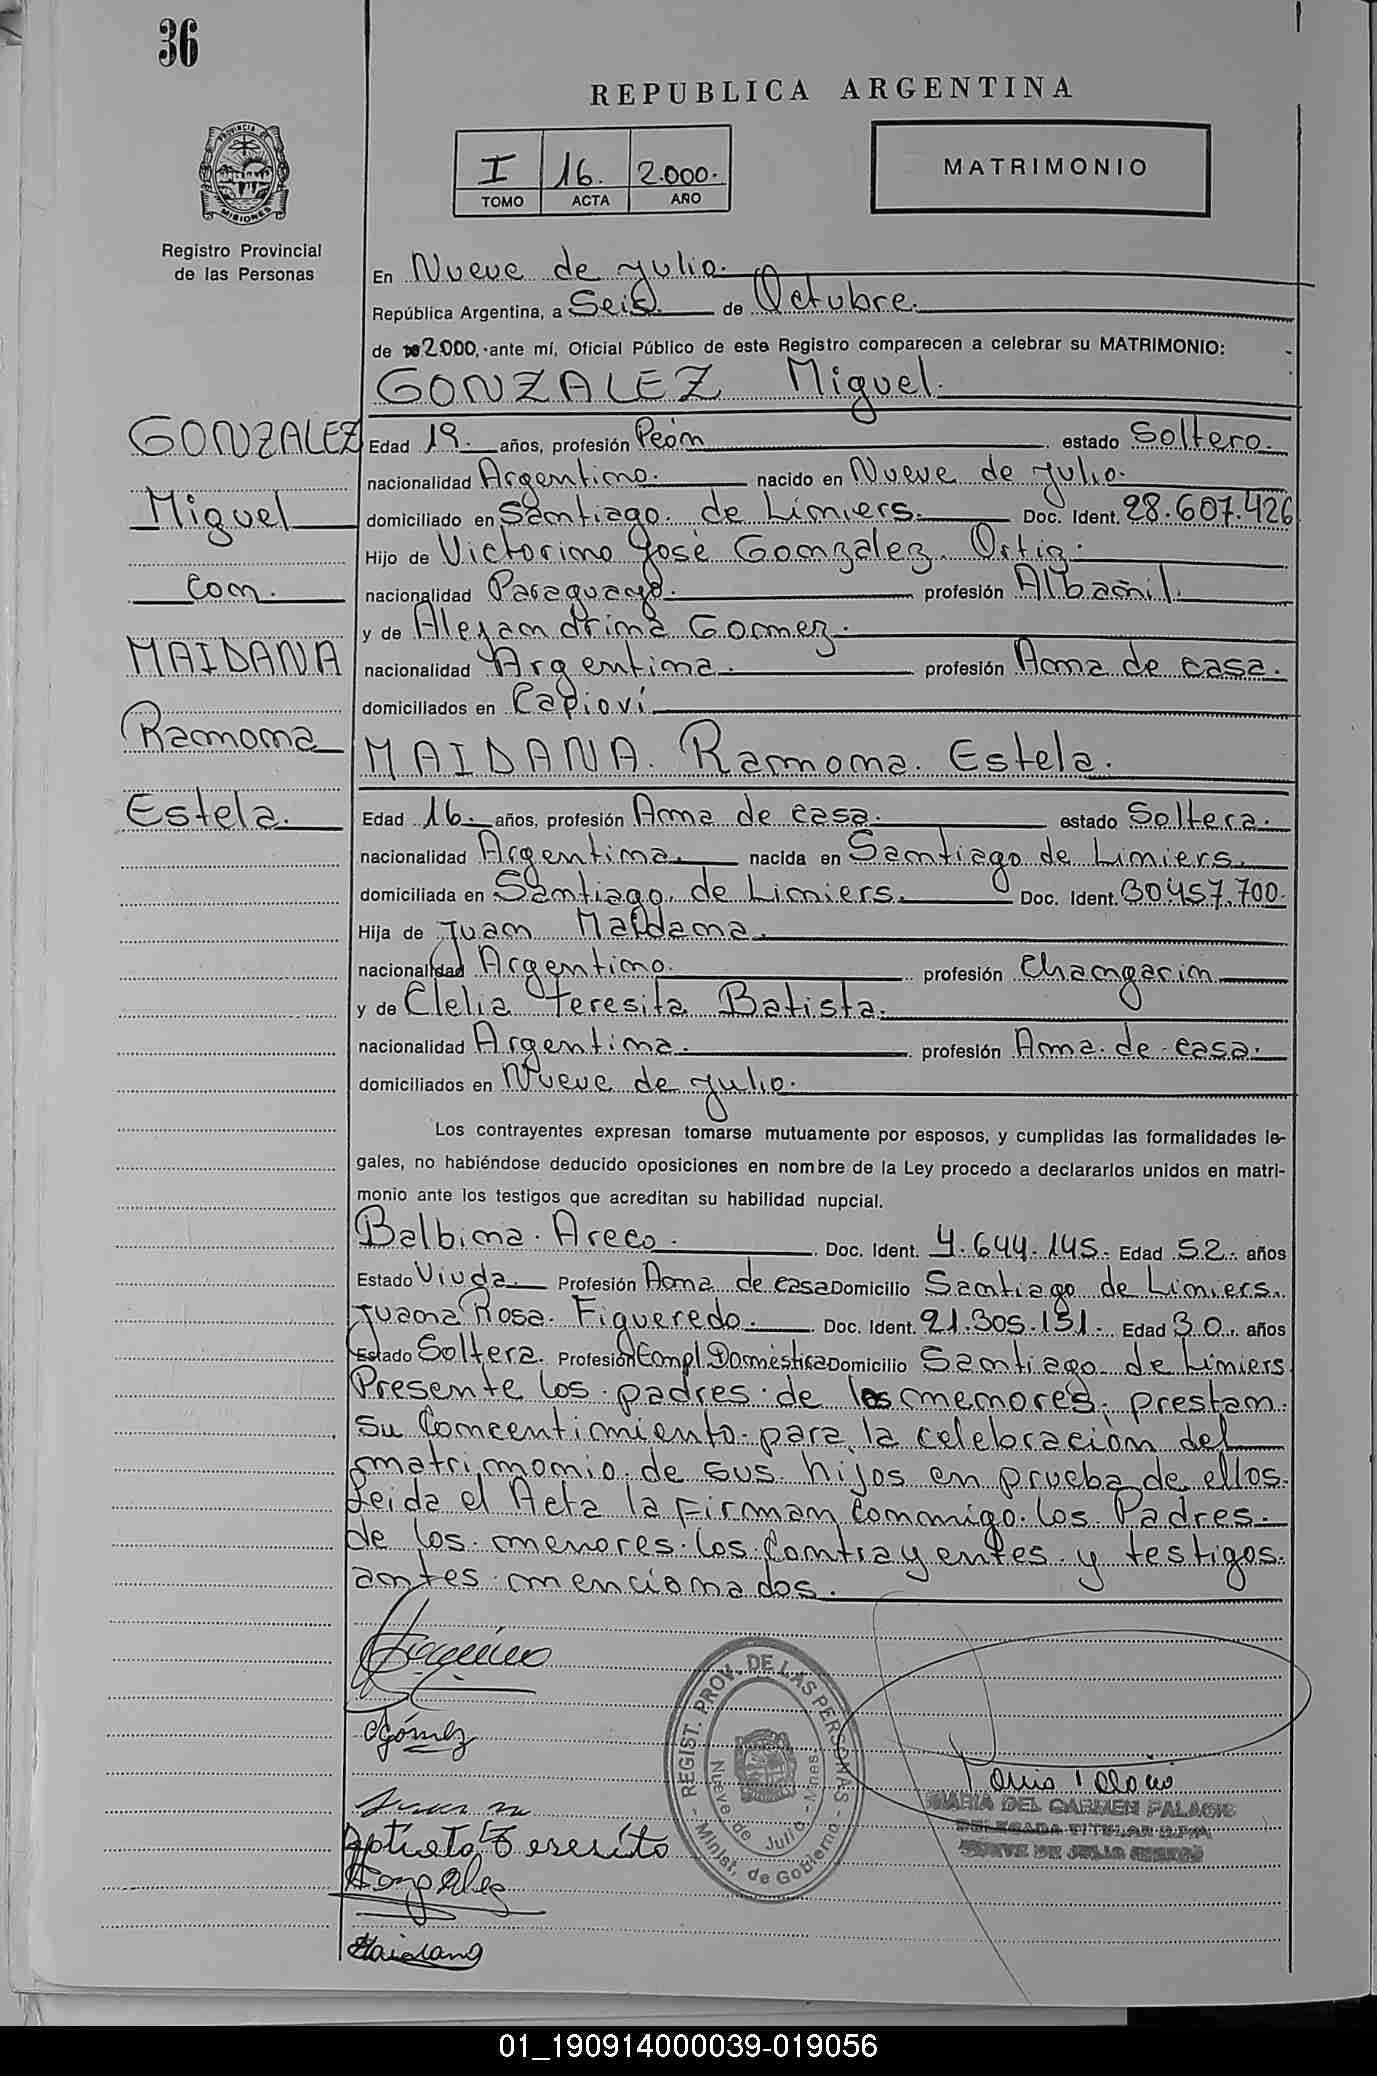 36
REPUBLICA ARGENTINA
PROVINCIA DE MISIONES
Registro Provincial
de las Personas
I 16. 2.000.
TOMO ACTA AÑO
MATRIMONIO
En Nueve de Julio.
República Argentina, a Seis. de Octubre.
de 2.000, ante mí, Oficial Público de este Registro comparecen a celebrar su MATRIMONIO:
GONZALEZ Miguel.
GONZALEZ
Miguel
con.
MAIDANA
Ramona
Estela.
Edad 19. años, profesión Peón estado Soltero.
nacionalidad Argentino. nacido en Nueve de Julio.
domiciliado en Santiago de Liniers. Doc. Ident. 28.607.426
Hijo de Victorino José Gonzalez Ortiz.
nacionalidad Paraguayo. profesión Albañil.
y de Alejandrina Gomez.
nacionalidad Argentina. profesión Ama de casa.
domiciliados en Capioví
MAIDANA. Ramona. Estela.
Edad 16. años, profesión Ama de casa. estado Soltera.
nacionalidad Argentina. nacida en Santiago de Liniers.
domiciliada en Santiago de Liniers. Doc. Ident. 30.457.700.
Hija de Juan Maidana.
nacionalidad Argentino. profesión Changarin
y de Clelia Teresita Batista.
nacionalidad Argentina. profesión Ama de casa.
domiciliados en Nueve de Julio.
Los contrayentes expresan tomarse mutuamente por esposos, y cumplidas las formalidades le-
gales, no habiéndose deducido oposiciones en nombre de la Ley procedo a declararlos unidos en matri-
monio ante los testigos que acreditan su habilidad nupcial.
Balbina. Areco. Doc. Ident. 4.644.145. Edad 52. años
Estado Viuda. Profesión Ama de casa Domicilio Santiago de Liniers.
Juana Rosa. Figueredo. Doc. Ident. 21.305.151. Edad 30. años
Estado Soltera. Profesión Empl. Doméstica Domicilio Santiago de Liniers
Presente los padres de los menores, prestan
su Concentimiento para la celebración del
matrimonio de sus hijos en prueba de ellos.
Leida el Acta la Firman Conmigo los Padres.
de los menores los Contrayentes y testigos
antes mencionados.
Gómez
Teresita
Gonzalez
Maidana
REGIST. PROV. DE LAS PERSONAS
Minist. de Gobierno
Nueve de Julio - Mnes.
MARIA DEL CARMEN PALACIO
DELEGADA TITULAR R.P.P.
NUEVE DE JULIO
01_190914000039-019056